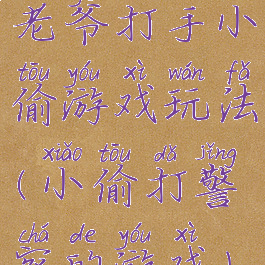 老爷打手小
tōu yóu xì wán fǎ
偷游戏玩法
xiǎo tōu dǎ jǐng
(小偷打警
chá de yóu xì
察的游戏)